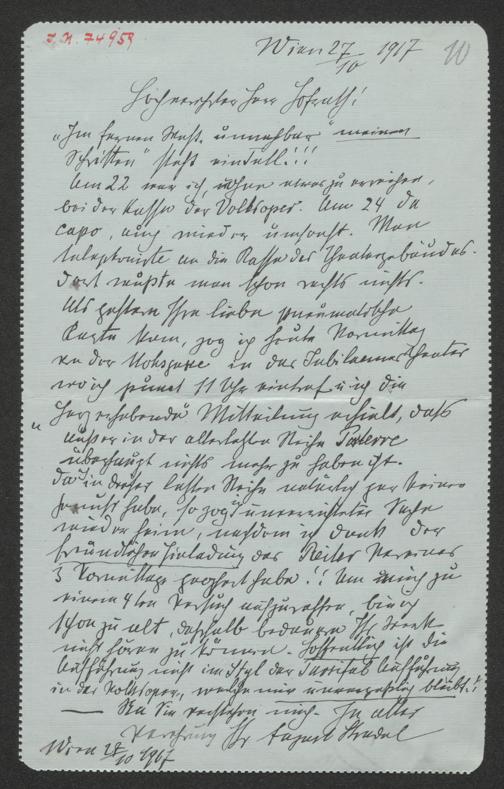 I.N. 74959
Wien 27/10 1917
10
Hochverehrter Herr Hofrath!
"Im fernen Land, unnahbar meinen
Schritten" steht
Am 22 war ich, ohne etwas zu erreichen,
bei der Kassa der Volksoper. Am 24 da
capo, auch wieder umsonst. Man
telephonirte an die Kassa des Theatergebäudes.
Dort wußte man schon rechts nichts.
Als gestern Ihre liebe pneumatische
Karte kam, zog ich heute Vormittag
zu der in das Jubiläumstheater
wo ich punct 11 Uhr eintraf u. ich die
"herzerhebende" Mitteilung erhielt, daß
außer in der allerletzten Reihe Parterre
überhaupt nichts mehr zu haben ist.
Da ich in dieser letzten Reihe natürlich gar keinen
habe, so zog unverrichteter Sache
wieder heim, nachdem ich dank der
freundlichen Einladung des
3 Vormittage geopfert habe!! Um mich zu
einem 4ten Versuch aufzuraffen, bin ich
schon zu alt, deshalb bedaure Ihr Werk
nicht hören zu können. Hoffentlich ist die
Aufführung nicht im Styl der Parsifal Aufführung
in der Volksoper, welche mir unvergeßlich bleibt!!
In alter
Verehrung Ihr August Stradal
Wien 28/10 1917